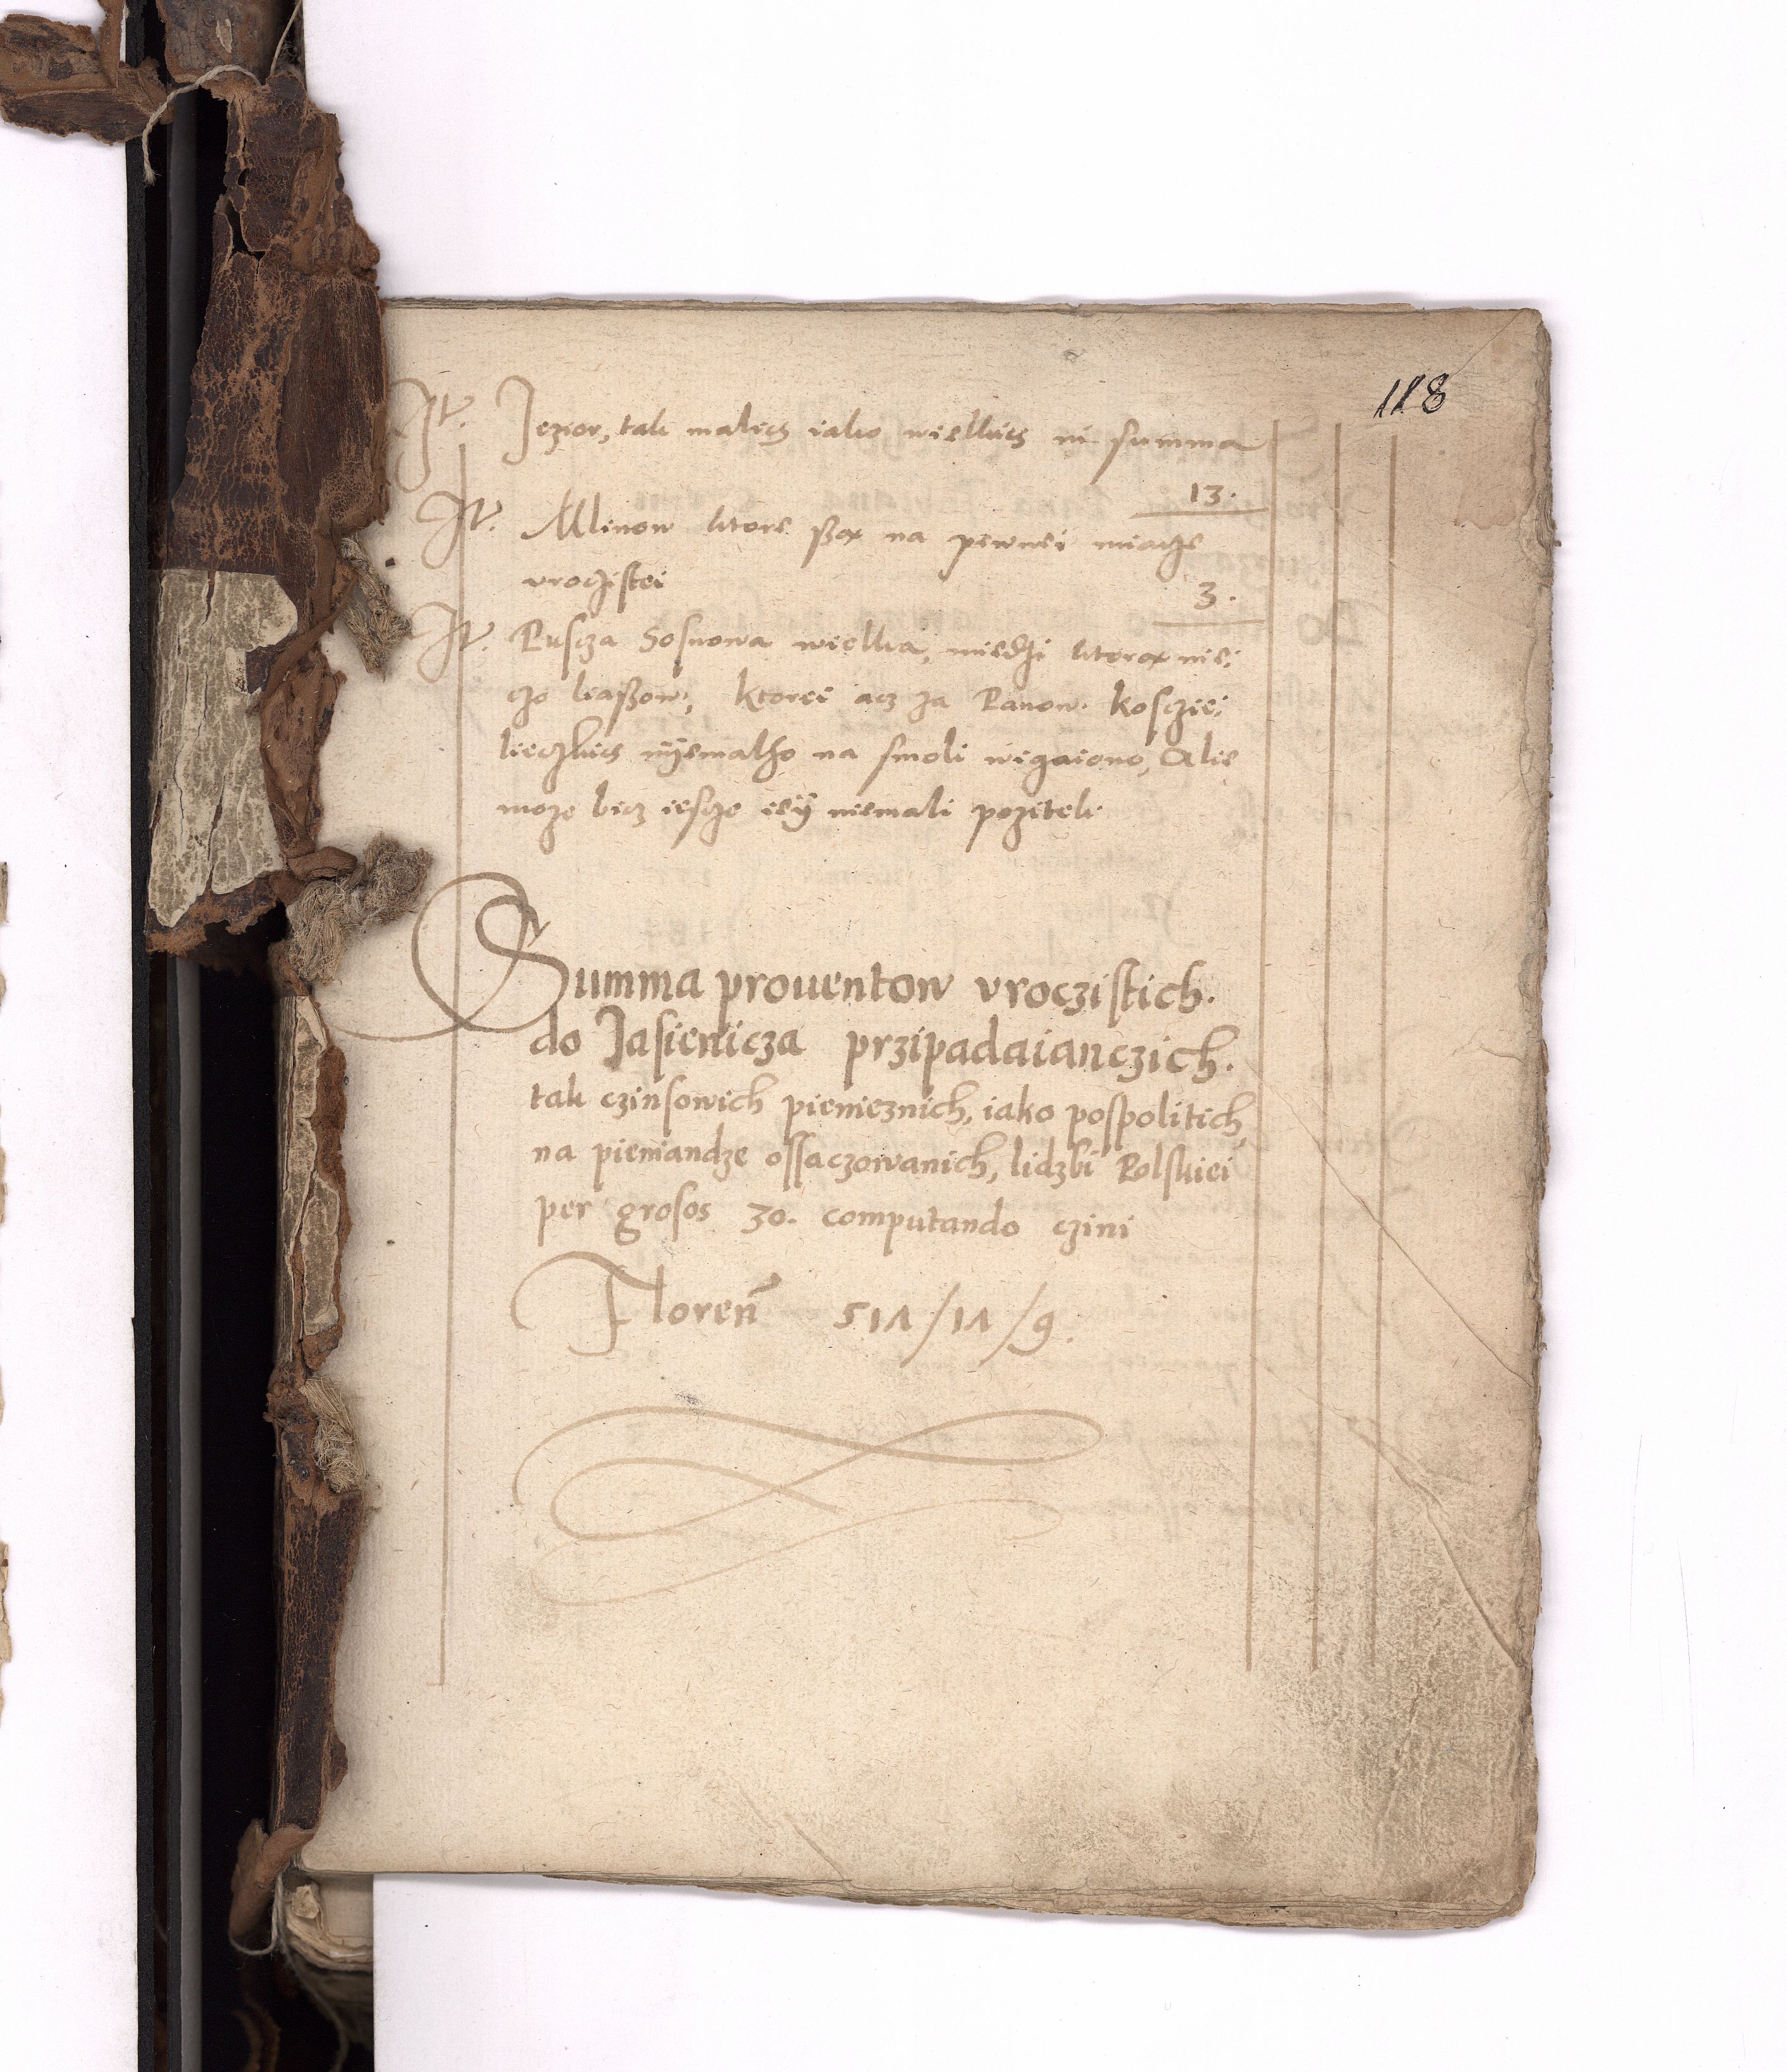 118
It. Jezior, tak malich iako wielkich in summa
13.
It. Mlinow ktore są na pewnei miarze
vroczistei
3.
It. Puscza Sosnowa wielka, miedzi ktorą nie:
czo liassow, ktorei acz za Panow Kosczie:
lieczkich niemalho na smoli wigaiono, Alie
moze bicz iescze iey niemali pozitek.
Summa prouentow vroczistich.
do Jasienicza przipadaianczich.
tak czinsowich pienieznich, iako pospolitich,
na pieniandze ossaczowanich, lidzbi Polskiei
per grosos 30. computando czini
Floren̄ 517/17/9.